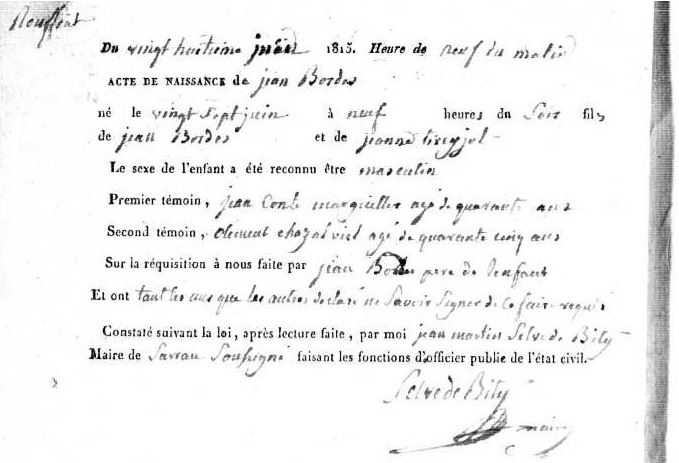 Du vingt huitieme juin 1815. Heure de neuf du matin
ACTE DE NAISSANCE de jean Bordes
né le vingt sept juin à neuf heures du Soir fils
de jean Bordes et de jeanne
Le sexe de l'enfant a été reconnu être masculin
Premier témoin, jean Conte marguiller agé de quarante ans
Second témoin, Clement agé de quarante cinq ans
Sur la réquisition à nous faite par jean Bordes pere de lenfant
Et ont tant les uns que les autres declaré ne Savoir Signer de ce faire requis
Constaté suivant la loi, après lecture faite, par moi jean martin Selve de Bity
Maire de Sarran Soussigné faisant les fonctions d'officier publie de l'état civil.
Selve de Bity
maire